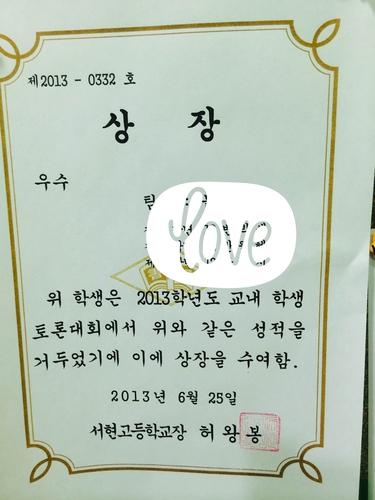 제2013 - 0332 호
상 장
우수
팀
Love
위 학생은 2013학년도 교내 학생
토론대회에서 위와 같은 성적을
거두었기에 이에 상장을 수여함.
2013년 6월 25일
서현고등학교장 허 왕 봉